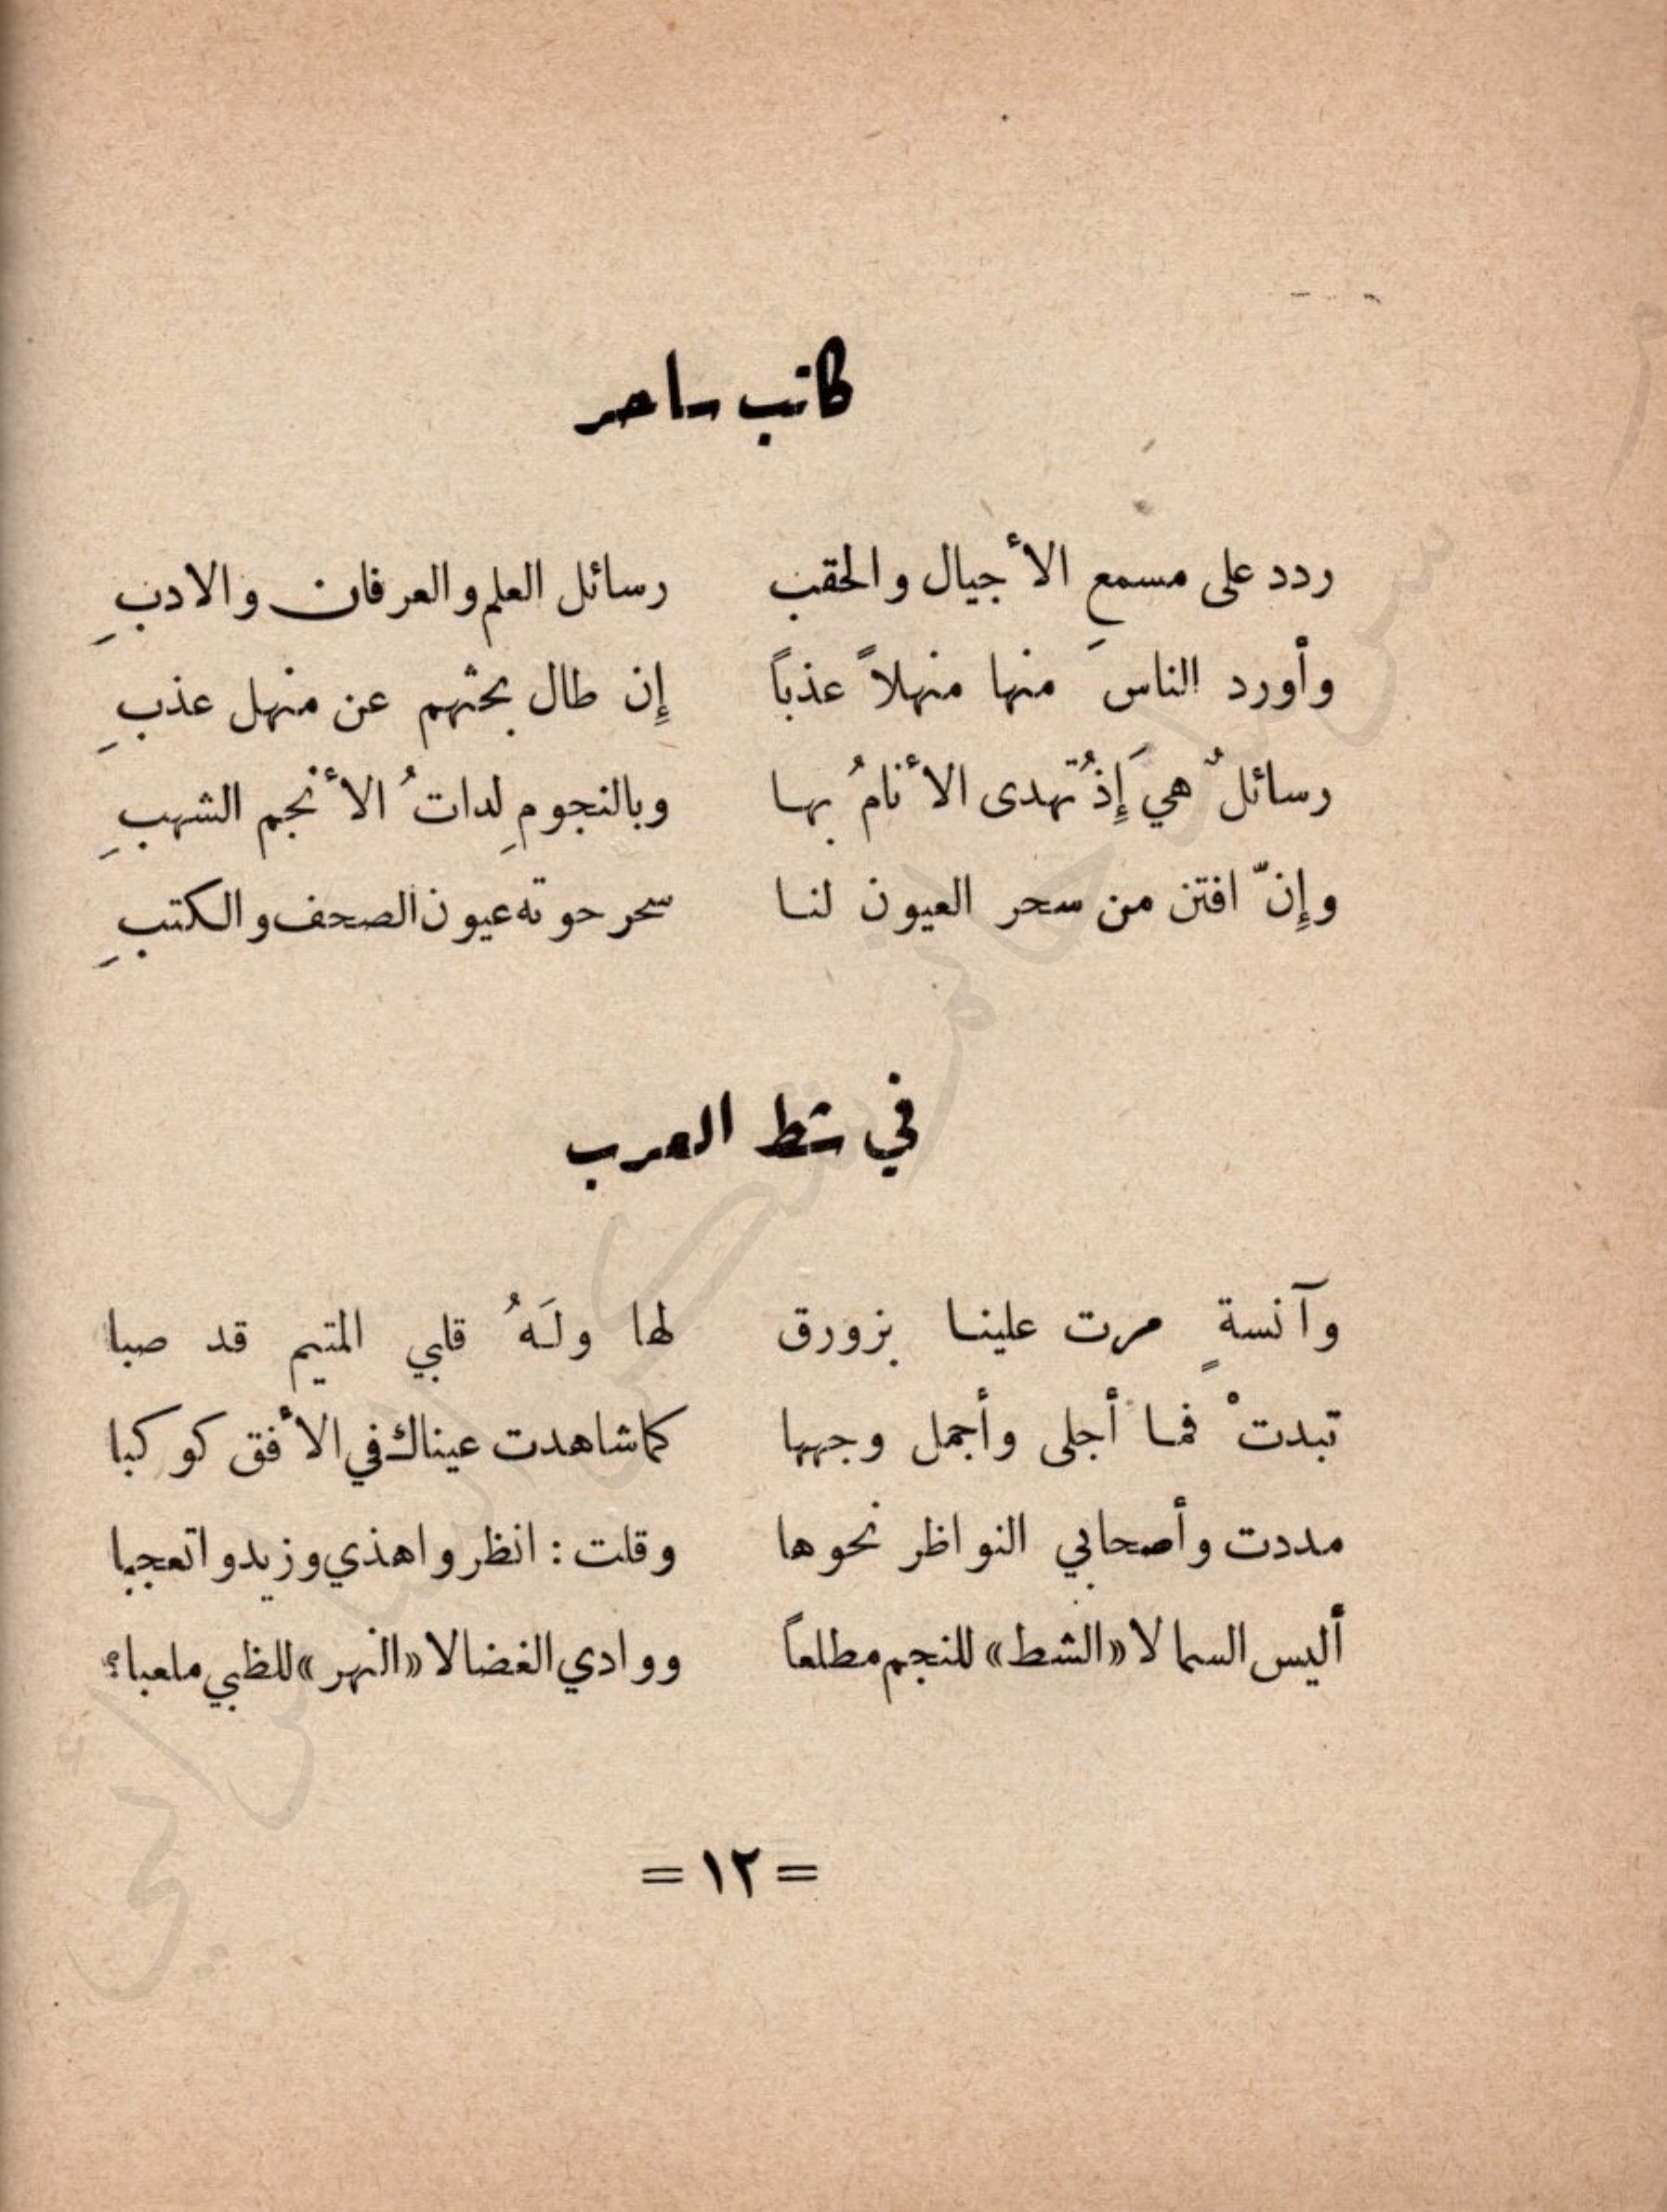 كاتب ساحر
ردد على مسمعِ الأجيال والحقب رسائل العلم والعرفان والادبِ
وأورد الناسَ منها منهلاً عذباً إن طال بحثهم عن منهل عذبِ
رسائلٌ هيَ إِذ تُهدى الأنامُ بها وبالنجومِ لداتُ الأنجم الشهبِ
وإِنّ افتن من سحر العيون لنا سحر حوته عيون الصحف والكتبِ
في شط العرب
وآنسةٍ مرت علينا بزورق لها ولَهُ قلبي المتيم قد صبا
تبدتْ فما أجلى وأجمل وجهها كما شاهدت عيناك في الأفق كوكبا
مددت وأصحابي النواظر نحوها وقلت : انظروا هذي وزيدوا تعجبا
أليس السما لا «الشط» للنجم مطلعاً ووادي الغضا لا «النهر» للظبي ملعبا؟
= ١٢ =